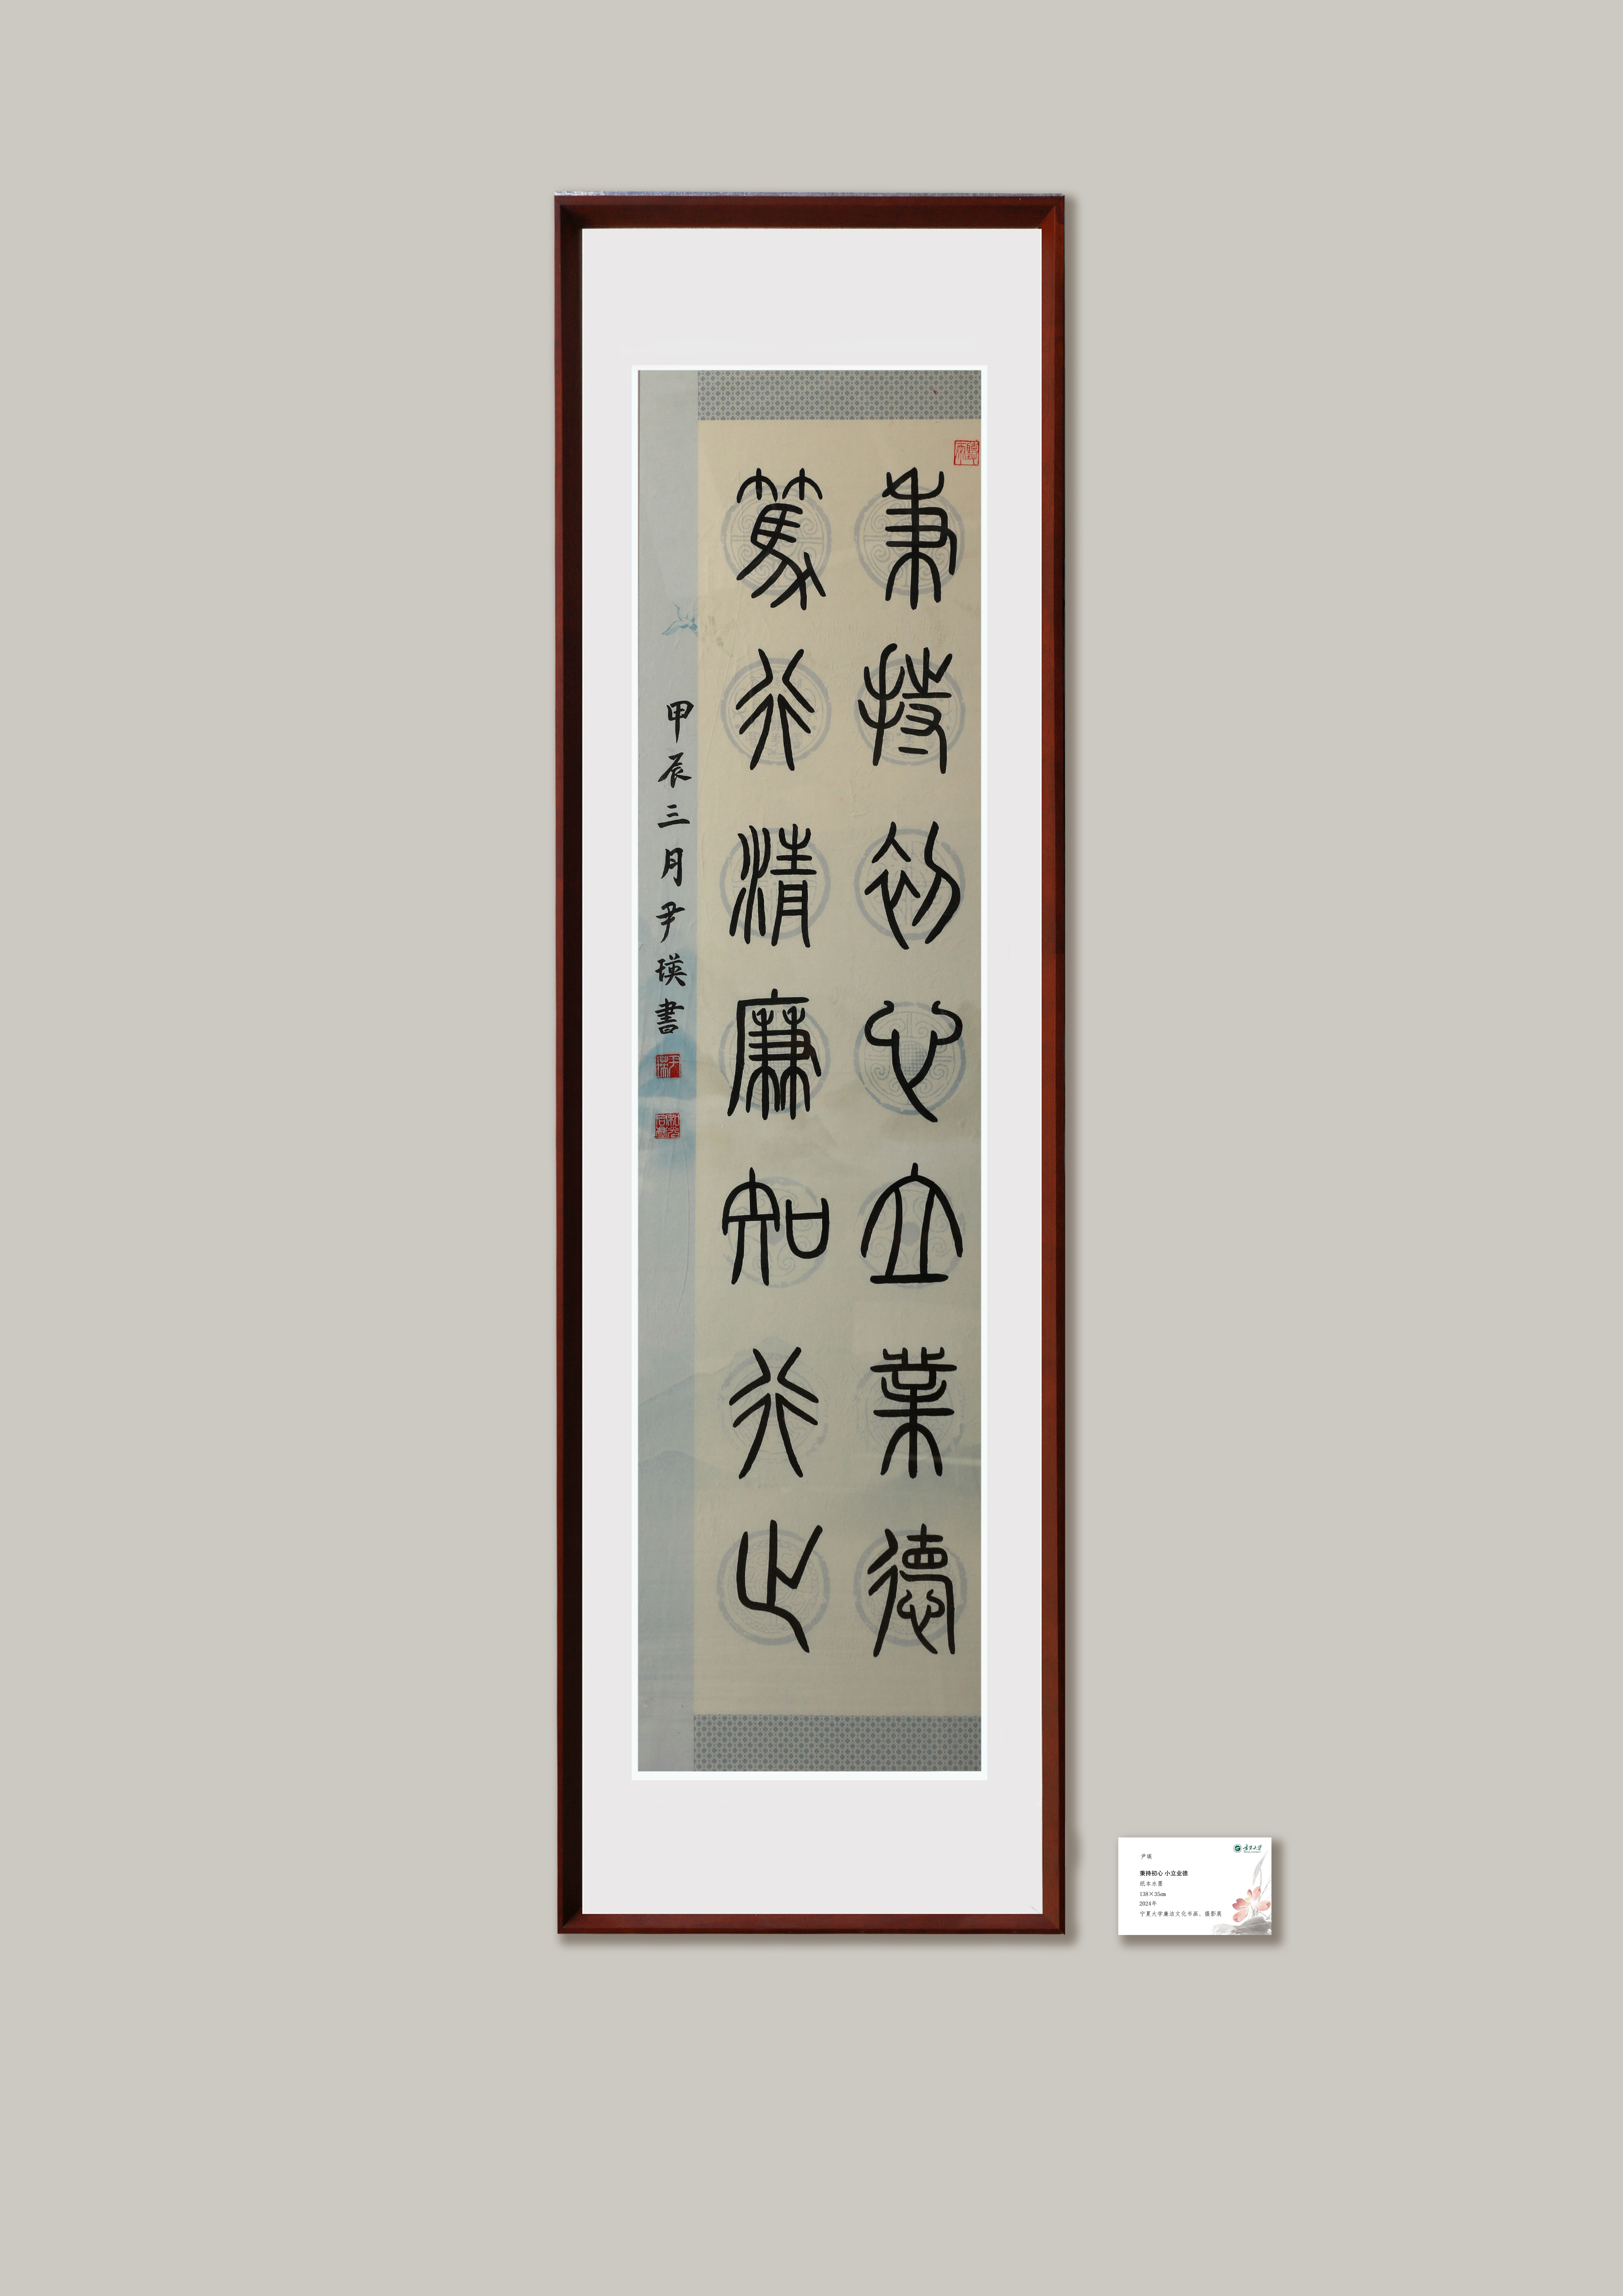 秉持初心立業德
篤行清廉知行止
甲辰三月尹瑛書
宁夏大学
尹瑛
秉持初心 小立业德
纸本水墨
138×35cm
2024年
宁夏大学廉洁文化书画、摄影展